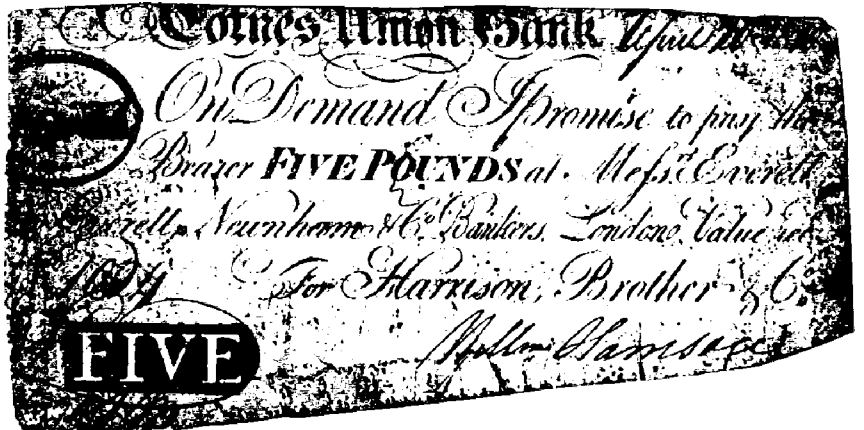 Totnes Union Bank April
On Demand I promise to pay the
Bearer FIVE POUNDS at Mefs.rs Everett
Newnham & Co. Bankers, London, Value
For Harrison, Brother & Co.
FIVE Harrison